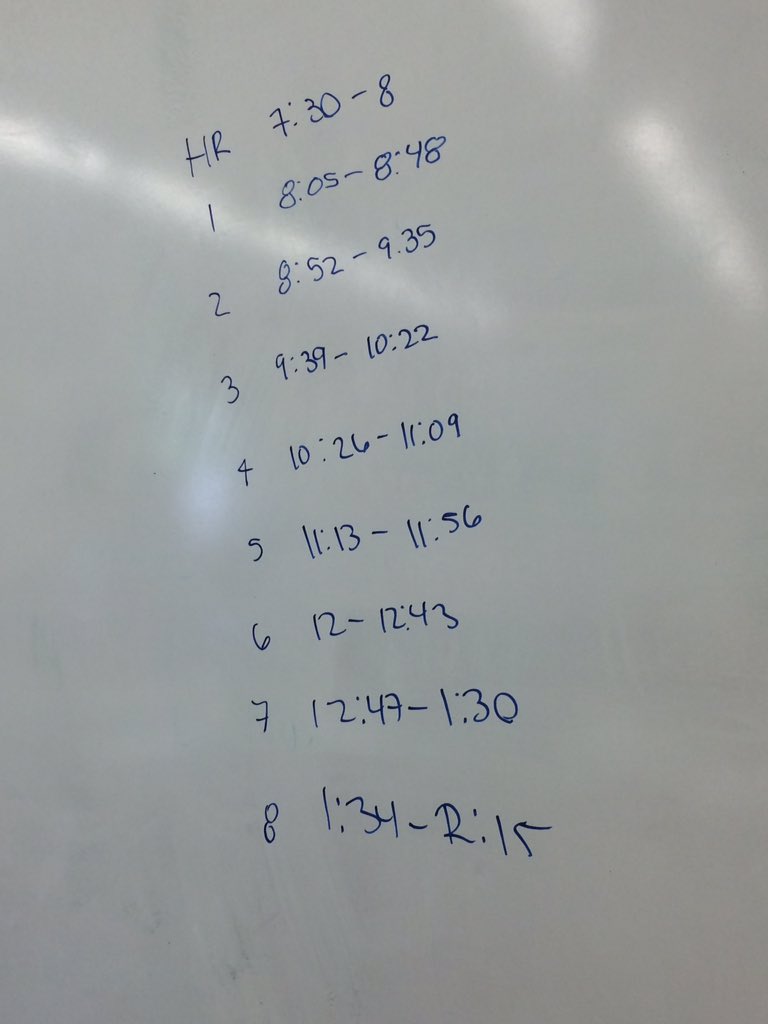 HR 7:30 - 8
1 8:05 - 8:48
2 8:52 - 9.35
3 9:39 - 10:22
4 10:26 - 11:09
5 11:13 - 11:56
6 12 - 12:43
7 12:47 - 1:30
8 1:34 - 2:15